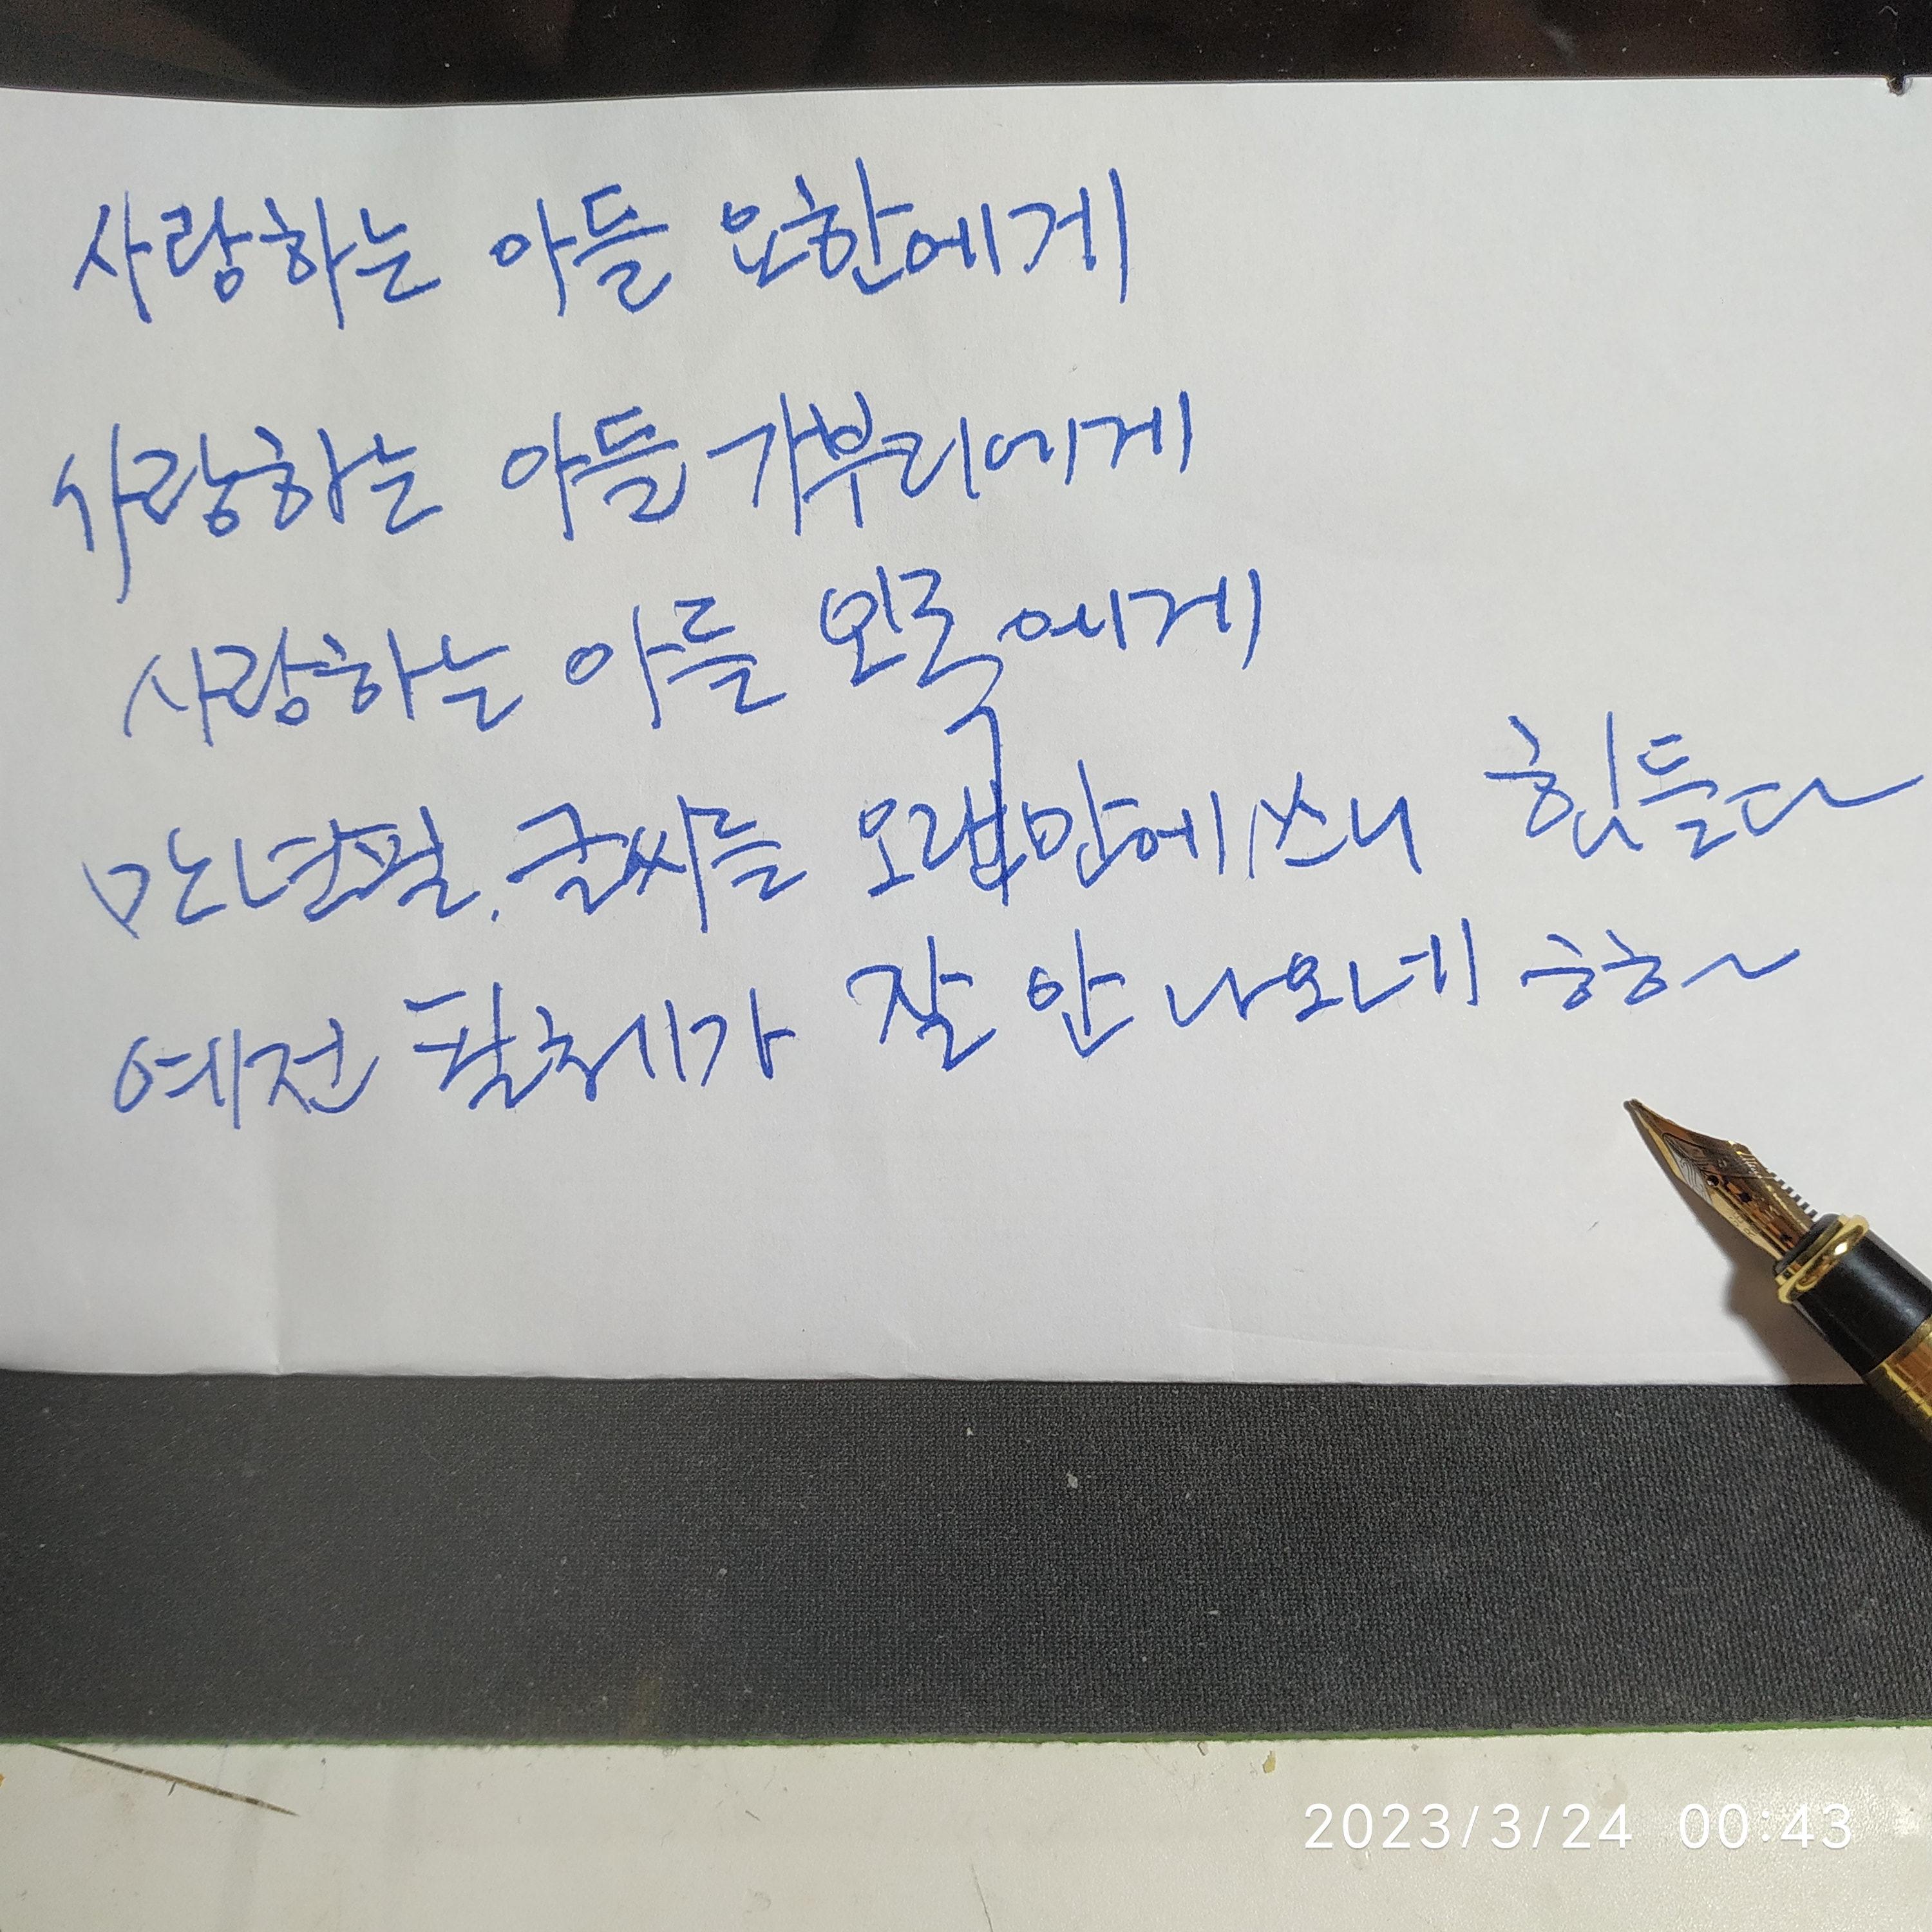 사랑하는 아들 요한에게
사랑하는 아들 가브리에게
사랑하는 아들 에게
만년필. 글씨를 오랩만에 쓰니 힘들다~
예전 필체가 잘 안 나오네 ㅎㅎ~
2023/3/24 00:43